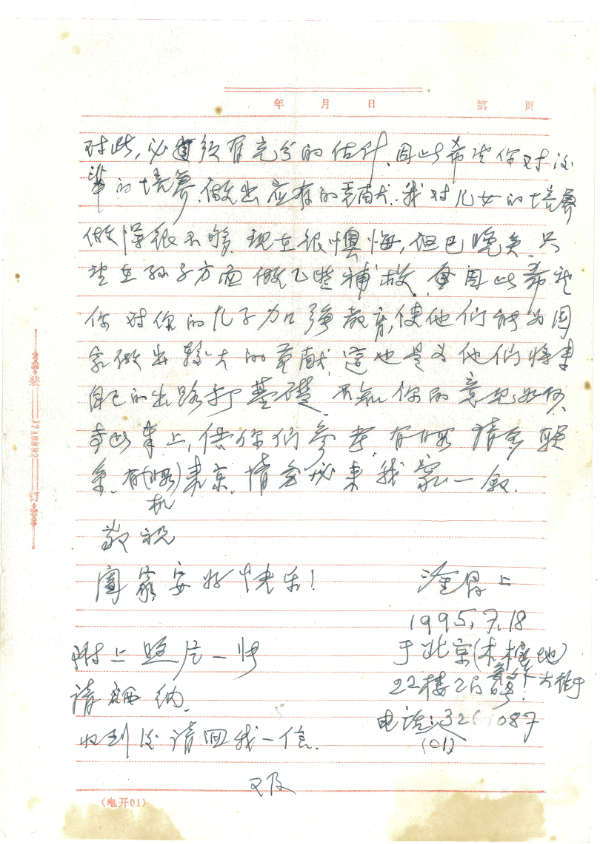 年 月 日 第 页
对此,必须有充分的估计,因此希望你对后
辈的培养,做出应有的贡献,我对儿女的培养
做得很不够,现在很懊悔,但已晚矣,只
望在孙子方面做些补救,因此希望
你对你的儿子加强教育,使他们能为国
家做出较大的贡献,这也是为他们将来
自己的出路打基礎,不知你的意见如何,
寄此上,供你们参考,有暇请多联
系,有(暇)机来京,请务必来我家一叙。
敬祝
阖家安好快乐!
上
1995,7.18
于北京(木樨地)
大街
22楼26号
电话:087
(01)
附上照片一张
请纳。
收到后请回我一信。
又及
(电开01)